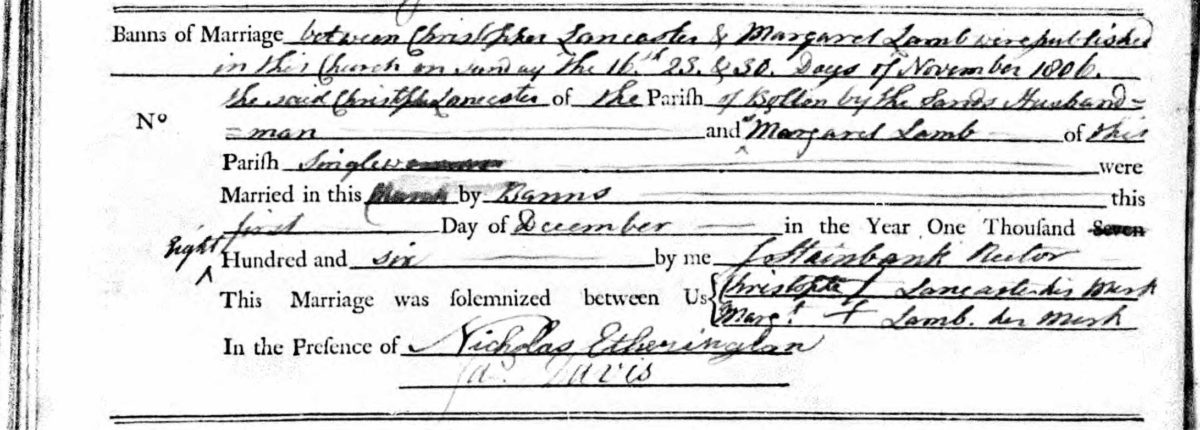 Banns of Marriage between Christopher Lancaster & Margaret Lamb were published
in this Church on sunday the 16.th 23. & 30. Days of November 1806.
the said Christphr Lancester of the Parish of Bolton by the Sands Husband=
No =man and Margaret Lamb of this
Parish Singlewoman were
Married in this Church by Banns this
first Day of December in the Year One Thousand Seven
Eight Hundred and six by me J Stainbank Rector
This Marriage was solemnized between Us Christopher Lancaster his Mark
Marg.t + Lamb. her Mark
In the Presence of Nicholas Etherington
Jas. Davis